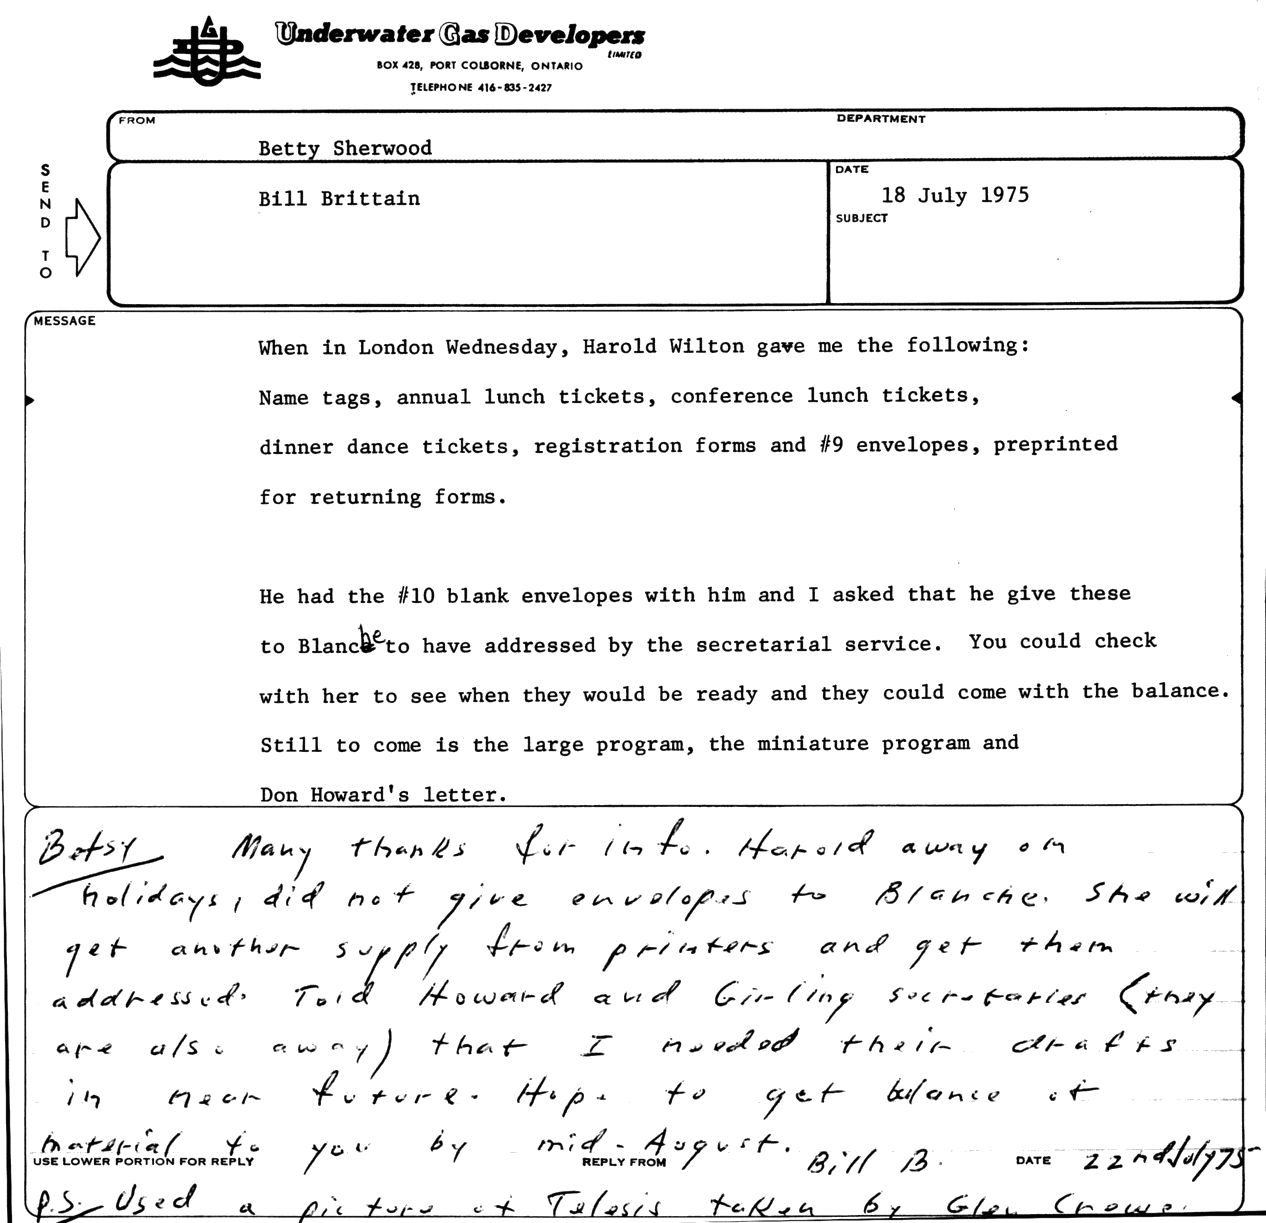 Underwater Gas Developers
LIMITED
BOX 428, PORT COLBORNE, ONTARIO
TELEPHONE 416-835-2427
FROM
Betty Sherwood
DEPARTMENT
SEND TO
Bill Brittain
DATE
18 July 1975
SUBJECT
MESSAGE
When in London Wednesday, Harold Wilton gave me the following:
Name tags, annual lunch tickets, conference lunch tickets,
dinner dance tickets, registration forms and #9 envelopes, preprinted
for returning forms.
He had the #10 blank envelopes with him and I asked that he give these
to Blanche to have addressed by the secretarial service. You could check
with her to see when they would be ready and they could come with the balance.
Still to come is the large program, the miniature program and
Don Howard's letter.
Betsy Many thanks for info. Harold away on
holidays, did not give envelopes to Blanche. She will
get another supply from printers and get them
addressed. Told Howard and Girling secretaries (they
are also away) that I needed their drafts
in near future. Hope to get balance of
material to you by mid-August.
USE LOWER PORTION FOR REPLY
REPLY FROM
Bill B.
DATE
22nd July 75
P.S. Used a picture of Telesis taken by Glen Crowe.